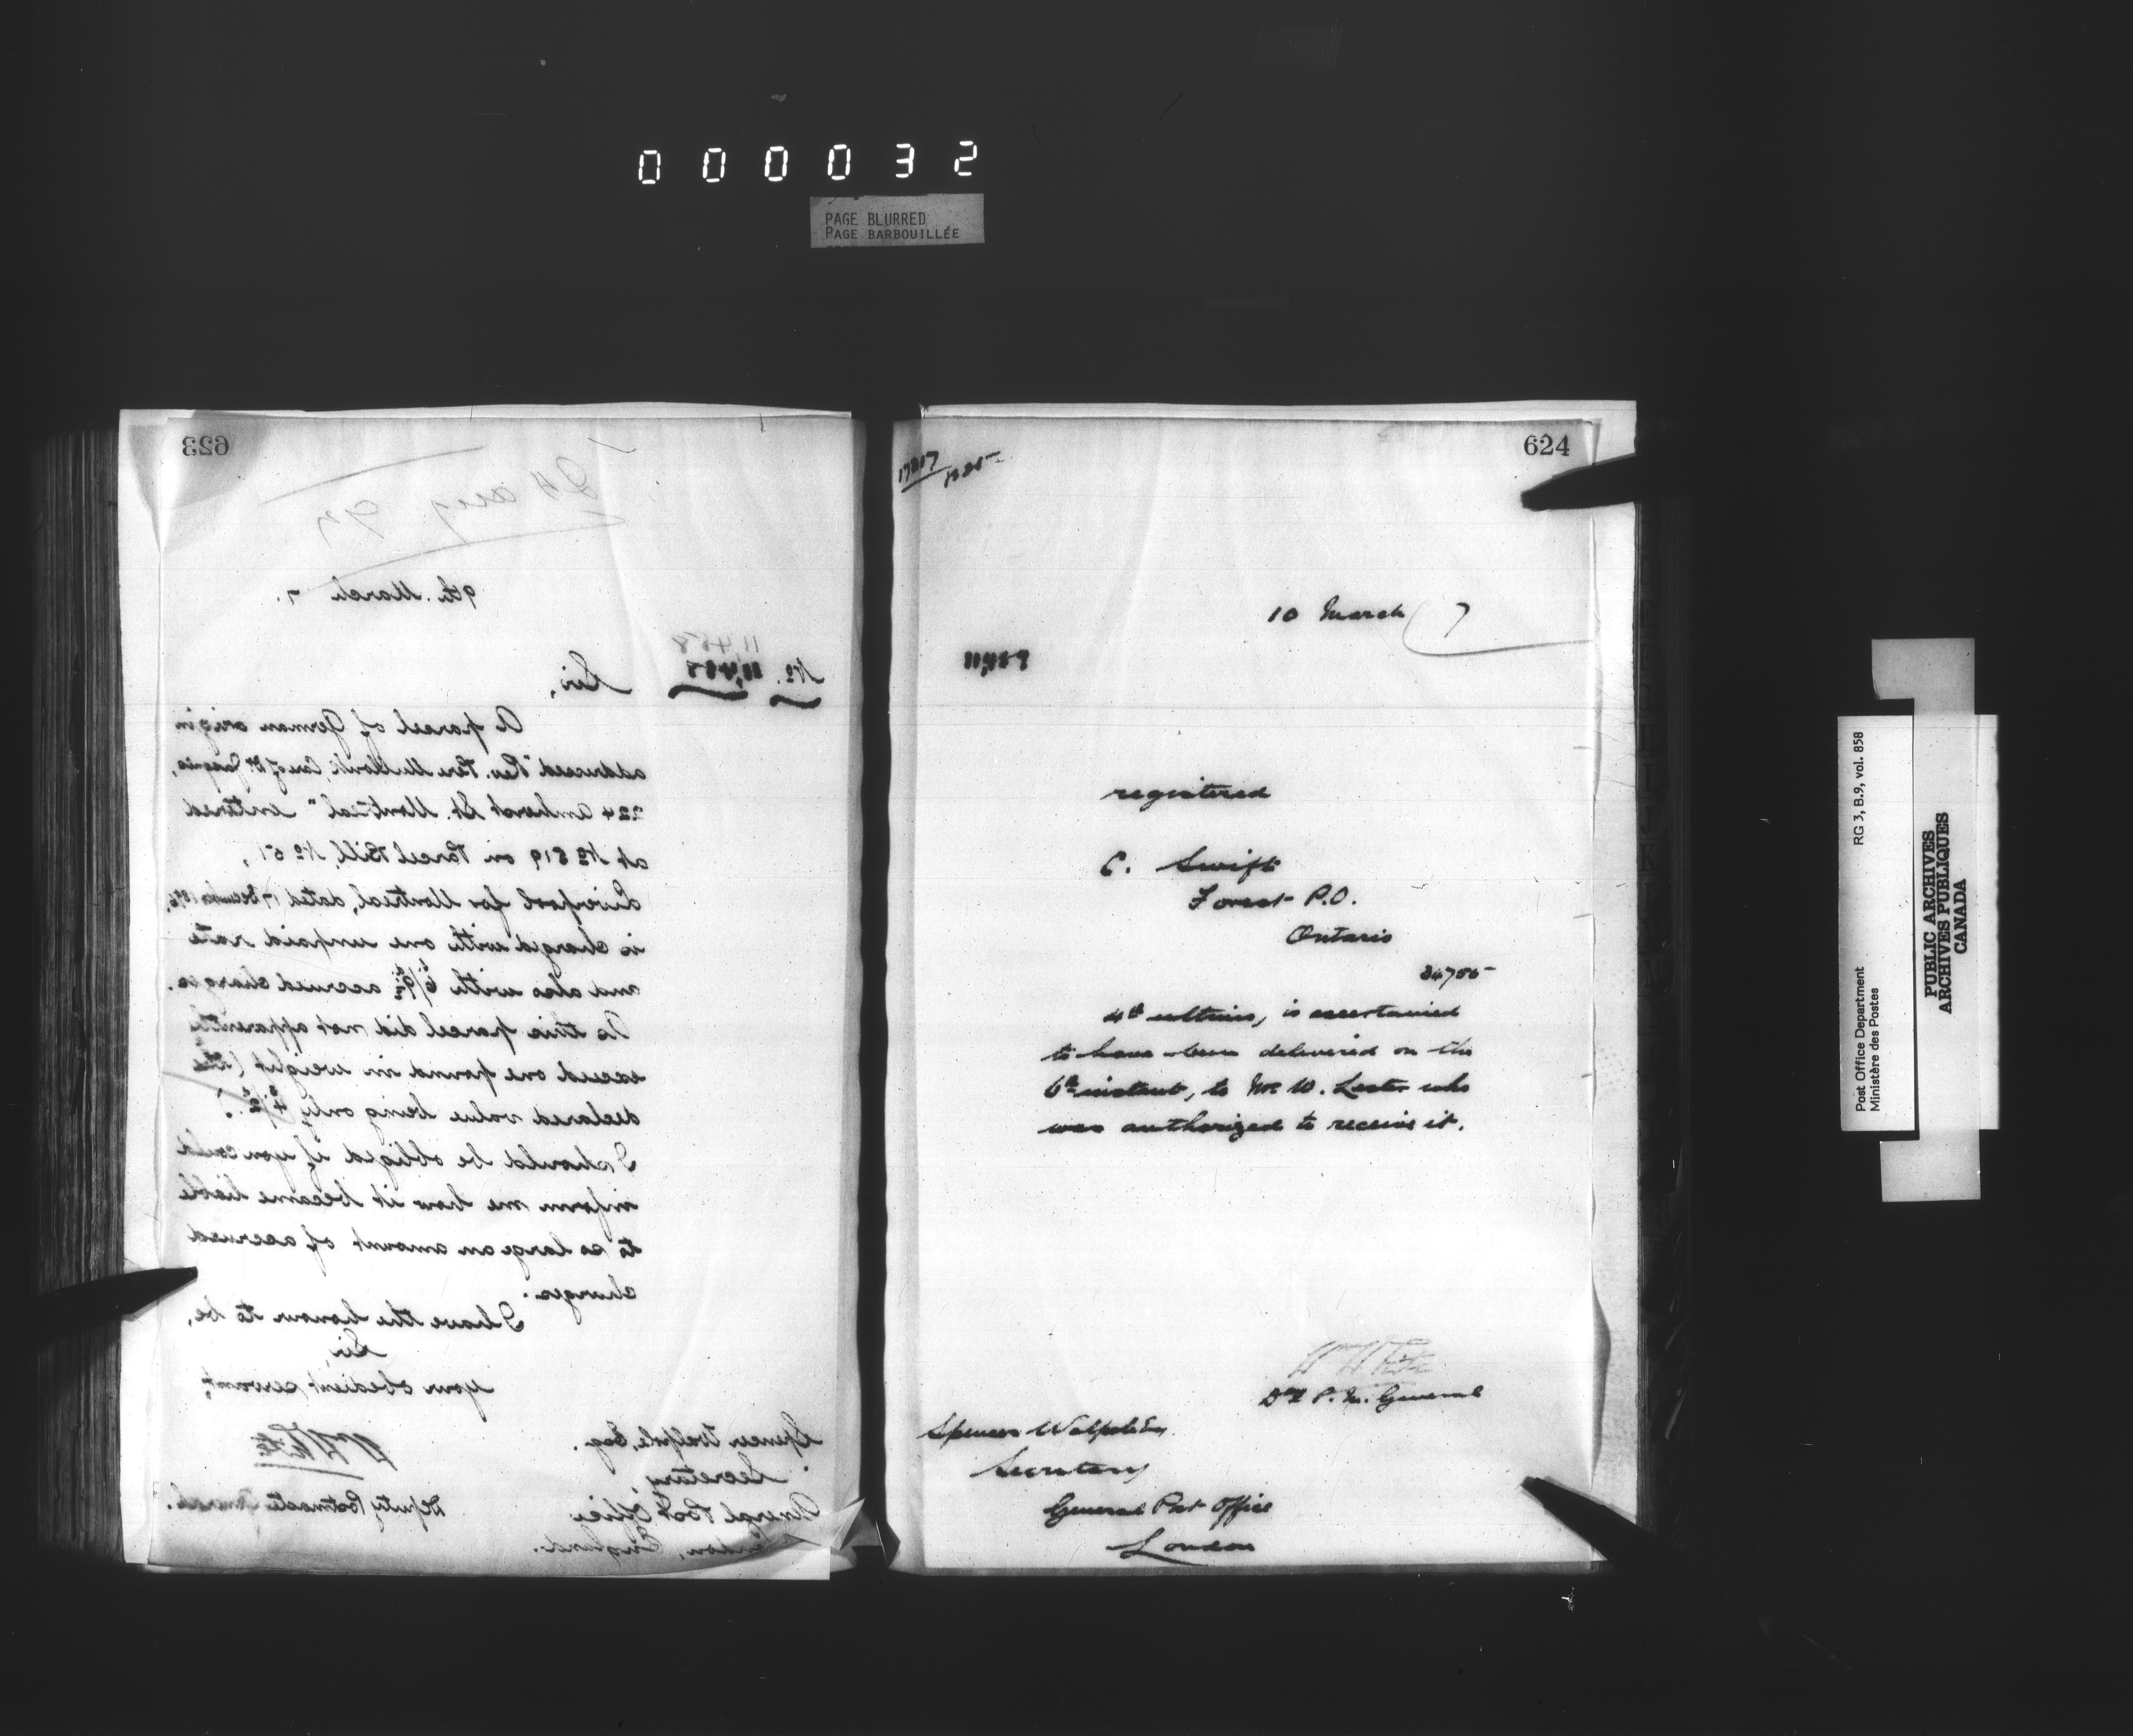 000032
PAGE BLURRED
PAGE BARBOUILLÉE
623
24 aug 97
9th. March 7.
11,458
No. 11,458
Sir,
A parcel of German origin
addressed "Rev. Père Care of Dr.
224 Amherst St. Montreal" entered
at No 519 on Parcel Bill, No 51,
Liverpool for Montreal, dated 17 December 1896,
is charged with one unpaid rate
and also with 6/9½ accrued charges.
As this parcel did not apparently
exceed one pound in weight (the
declared value being only
I should be obliged if you could
inform me how it became liable
to so large an amount of accrued
charges.
I have the honour to be,
Sir,
your obedient servant,
Spencer Walpole, Esq.
Secretary,
Deputy Postmaster General.
General Post Office
London, England.
624
10 March 7
11,459
registered
C. Swift
Forest P.O.
Ontario
34755
4th ultimo, is ascertained
to have been delivered on the
6th instant, to Mr. W. Lester who
was authorized to receive it.
Dy P. M. General
Spencer Walpole Esq
Secretary
General Post Office
London
Post Office Department
Ministère des Postes
RG 3, B.9, vol. 858
PUBLIC ARCHIVES
ARCHIVES PUBLIQUES
CANADA